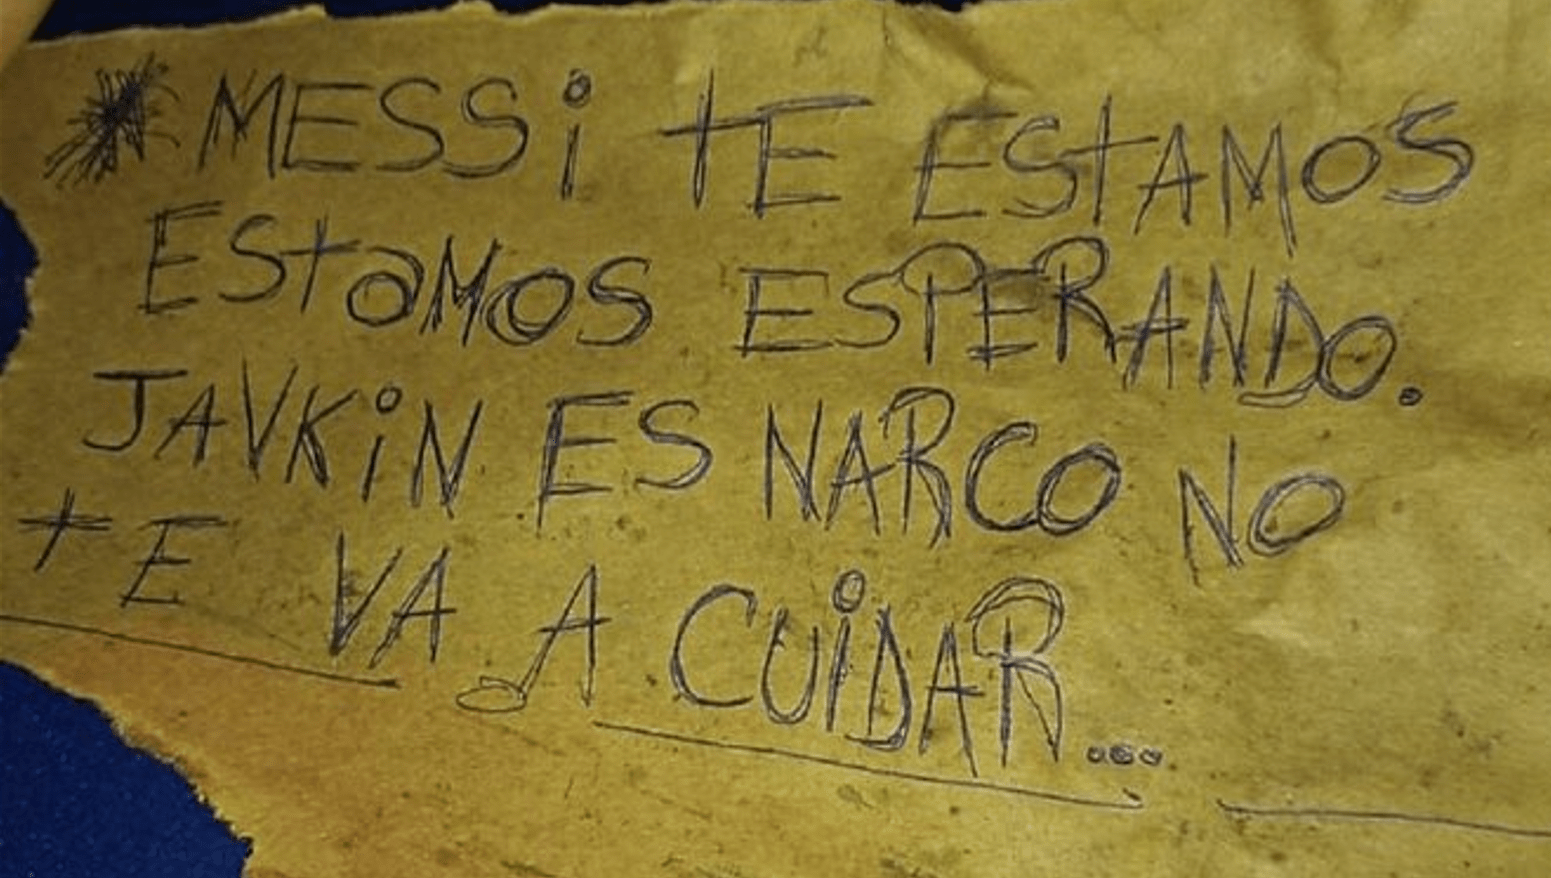 MESSi tE EStAMOS
EStaMOS ESPERANDO.
JAVKiN ES NARCO NO
tE VA A CUiDAR...